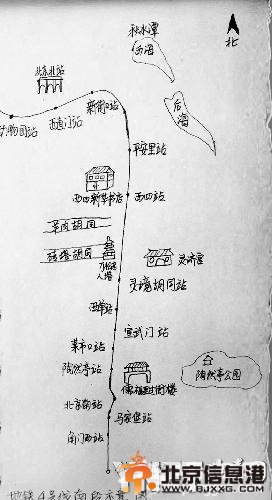 秋水潭
西海
北
后海
北京北站
新街口站
西直门站
动物园站
平安里站
西四新华书店
西四站
羊肉胡同
砖塔胡同
万松老人塔
灵济宫
灵境胡同站
西单站
宣武门站
菜市口站
陶然亭站
陶然亭公园
儒福里过街楼
北京南站
马家堡站
角门西站
地铁4号线南段示意图
北京信息港
WWW.BJXXG.COM